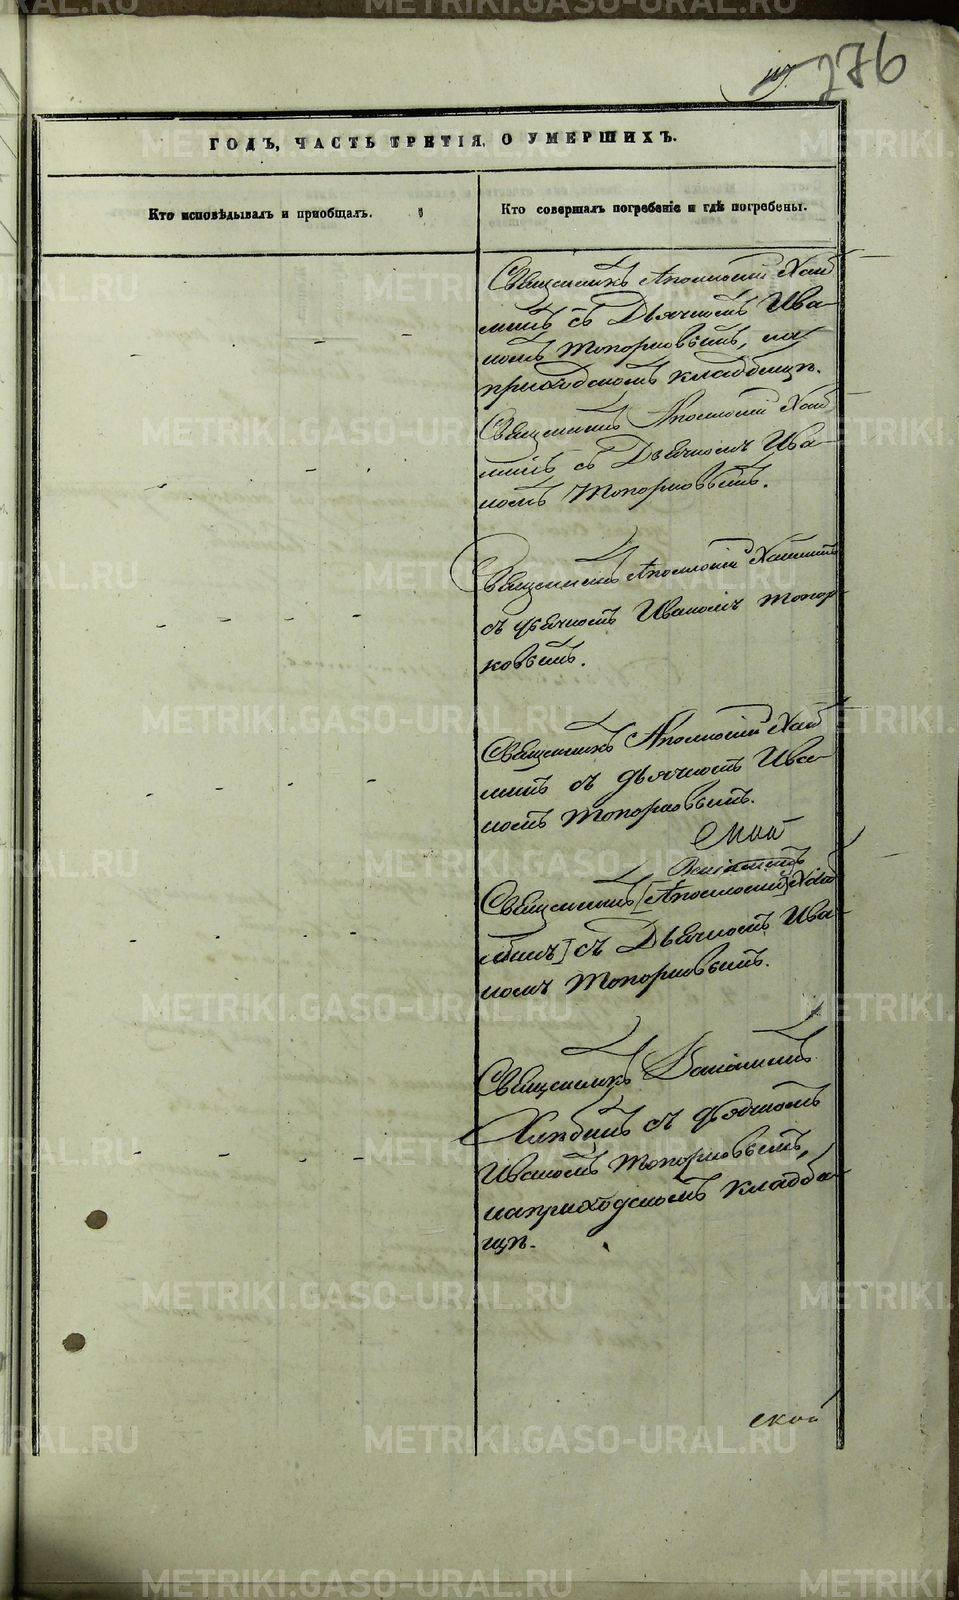 276
ГОДЪ, ЧАСТЬ ТРЕТІЯ, О УМЕРШИХЪ.
Кто исповѣдывалъ и приобщалъ.
Кто совершалъ погребеніе и гдѣ погребены.
Священникъ Аполлоній
съ Дьячкомъ Ива-
номъ Топорковымъ, на
приходскомъ кладбищѣ.
Священникъ Аполлоній
съ Дьячкомъ Ива-
номъ Топорковымъ.
Священникъ Аполлоній
съ дьячкомъ Иваномъ Топор-
ковымъ.
Священникъ Аполлоній
съ дьячкомъ Ива-
номъ Топорковымъ.
Священникъ [Аполлоній]
съ Дьячкомъ Ива-
номъ Топорковымъ.
Священникъ
съ дьячкомъ
Иваномъ Топорковымъ,
на приходскомъ кладби-
щѣ.
ской
METRIKI.GASO-URAL.RU